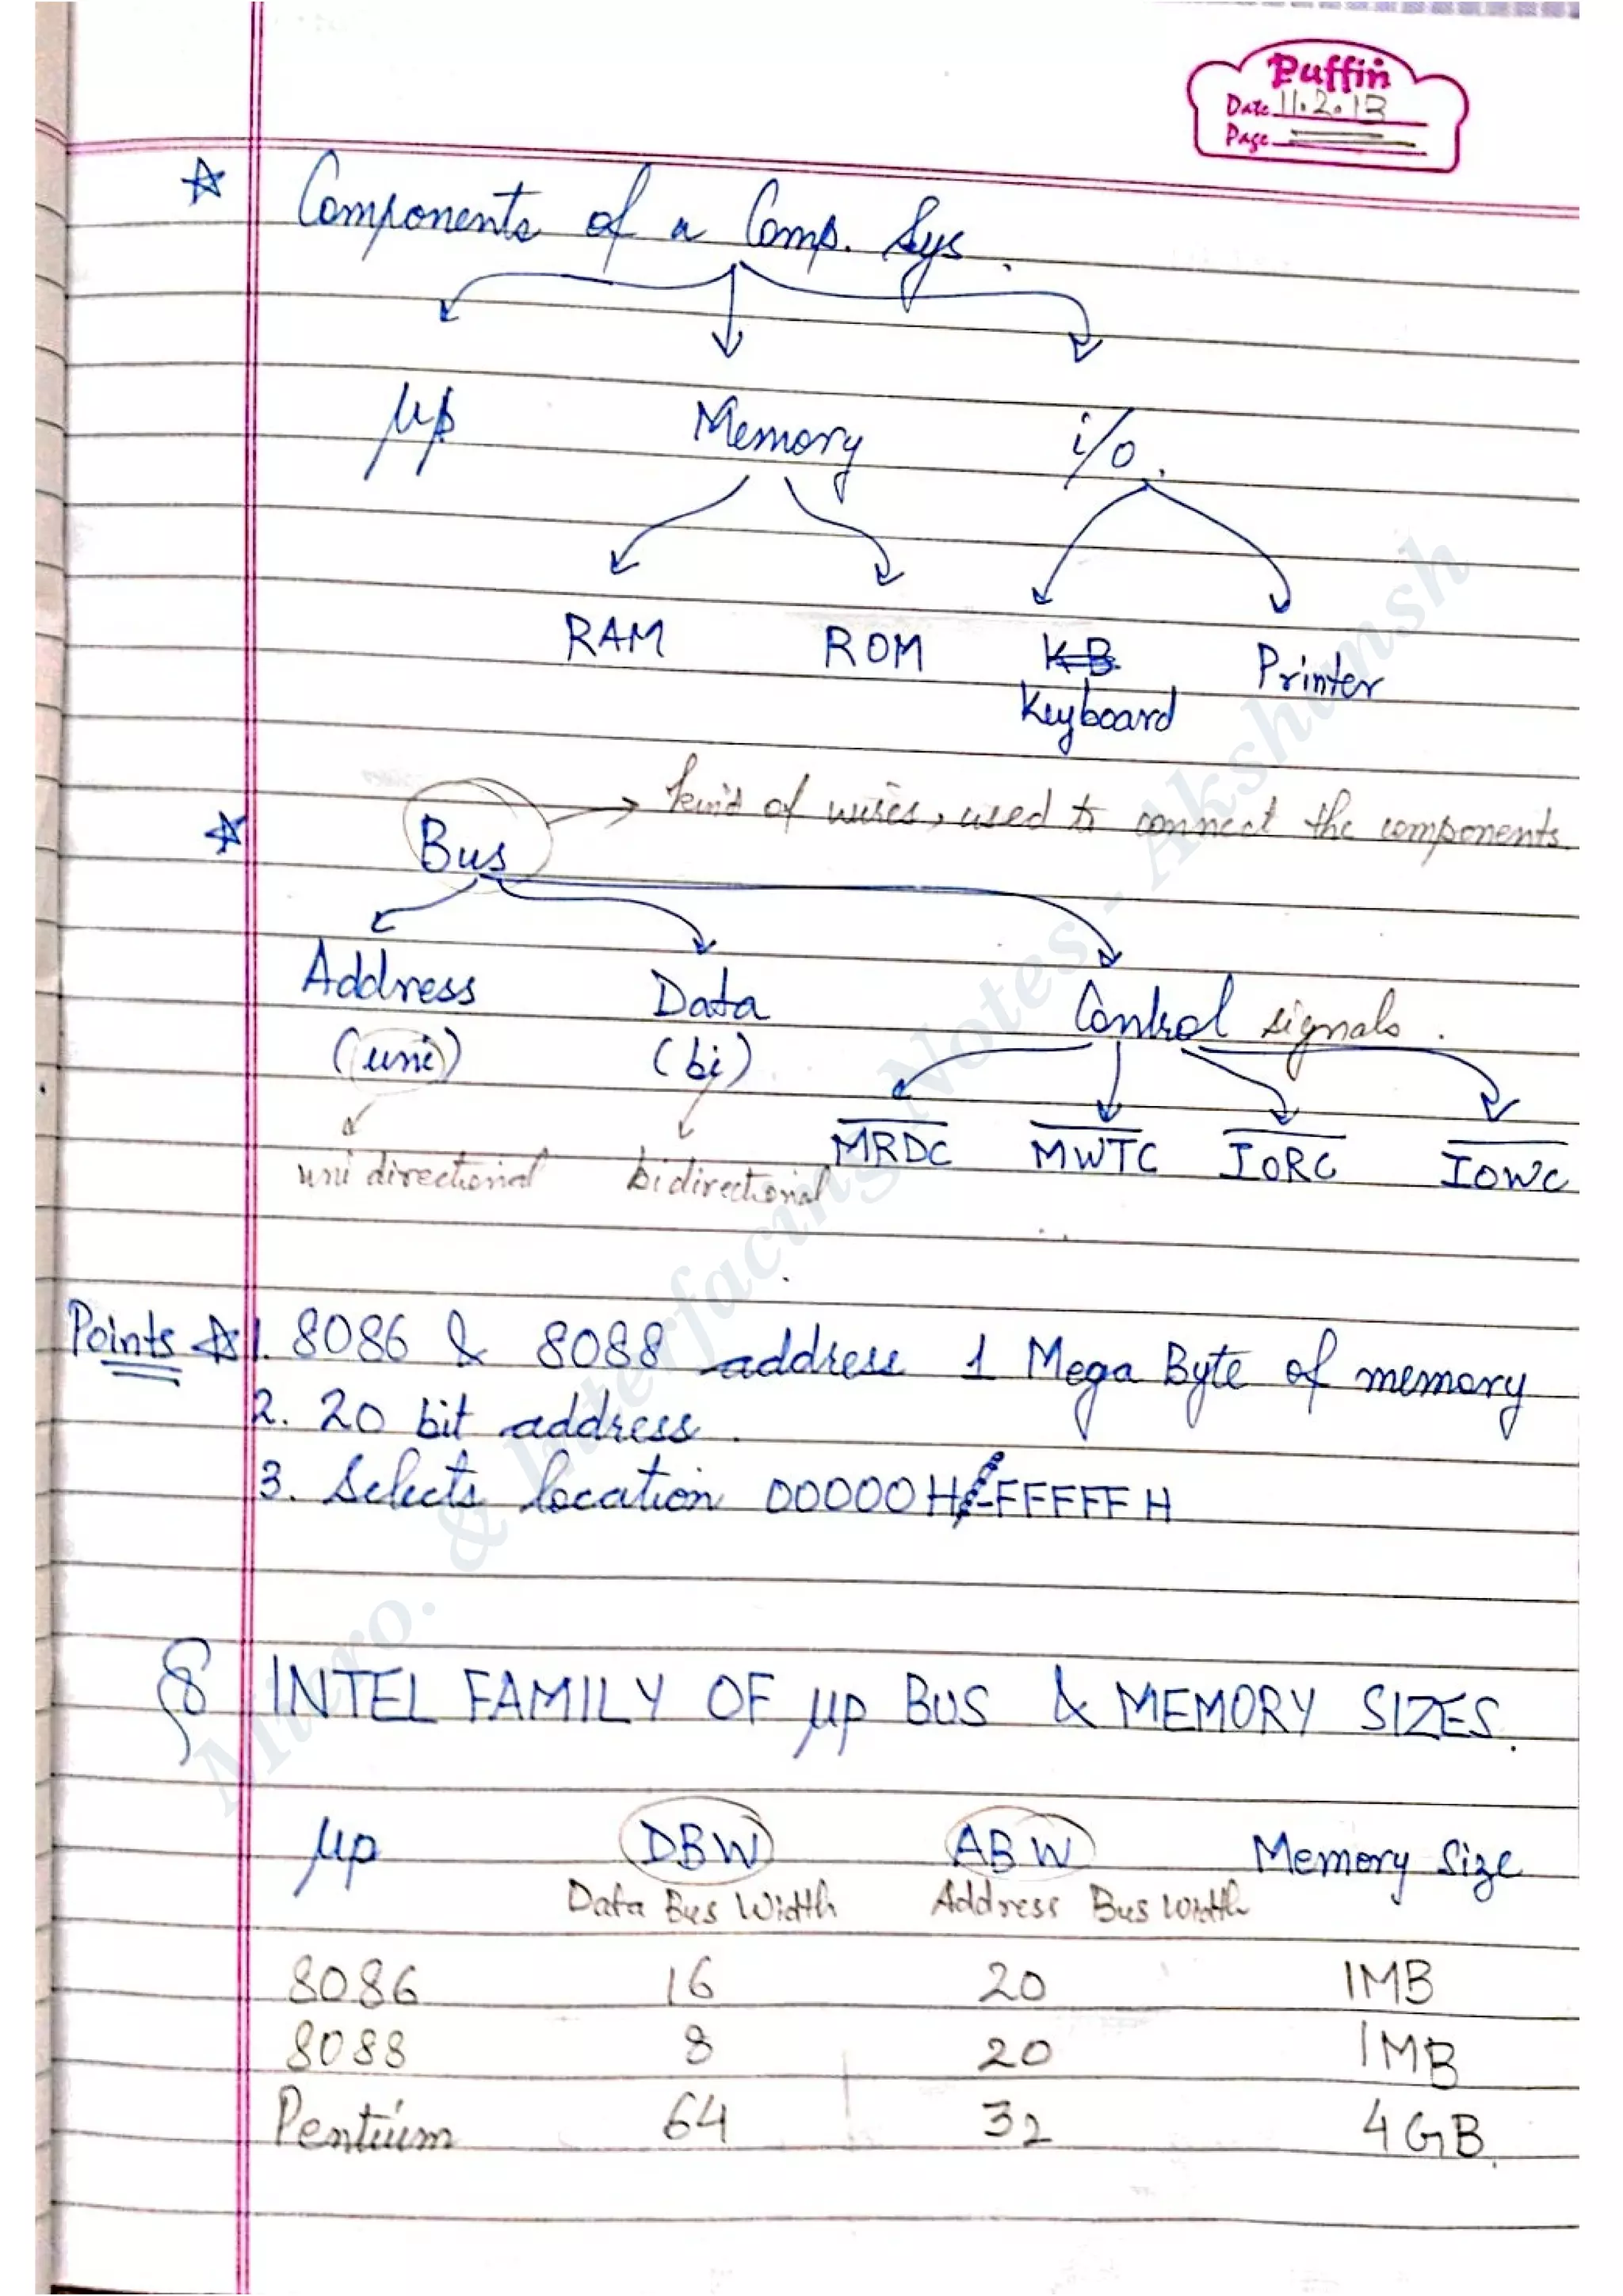 Puffin
Date 11.2.13
Page
☆ Components of a Comp. Sys.
μp Memory i/o.
RAM ROM KB Printer
Keyboard
☆ Bus → kind of wires, used to connect the components.
Address Data Control signals.
(uni) (bi)
MRDC MWTC IORC IOWC
uni directional bidirectional
Points ☆ 1. 8086 & 8088 address 1 Mega Byte of memory
2. 20 bit address.
3. Selects location 00000H-FFFFFH
§ INTEL FAMILY OF μp BUS & MEMORY SIZES.
μp DBW ABW Memory Size
Data Bus Width Address Bus Width
8086 16 20 1MB
8088 8 20 1MB
Pentium 64 32 4GB.
Micro. & Interfacing Notes - Akshansh